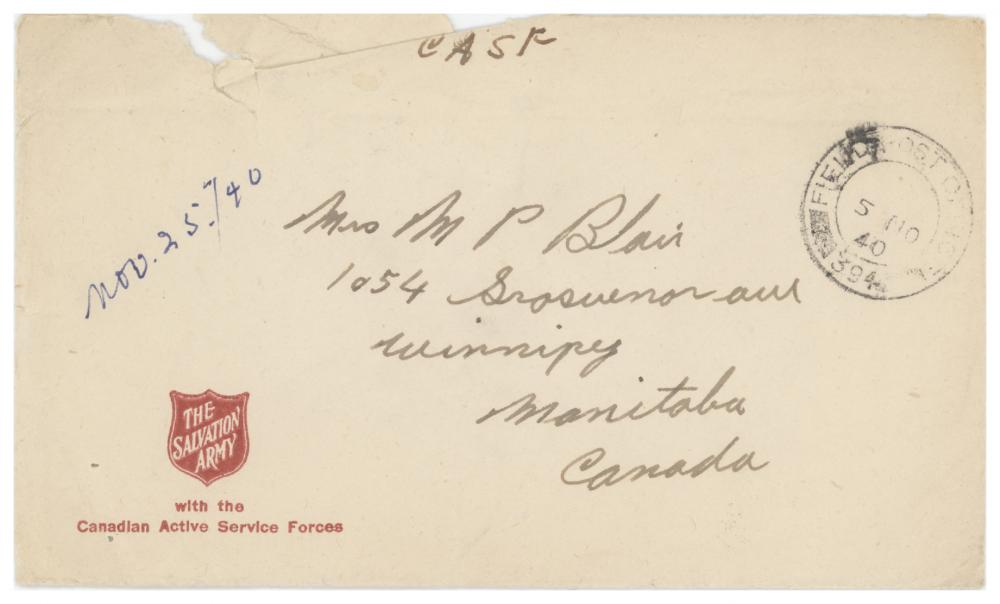 CASF
FIELD POST OFFICE
5 NO
40
394
Nov. 25./40
Mrs M P Blair
1054 Grosvenor ave
Winnipeg
Manitoba
Canada
THE
SALVATION
ARMY
with the
Canadian Active Service Forces